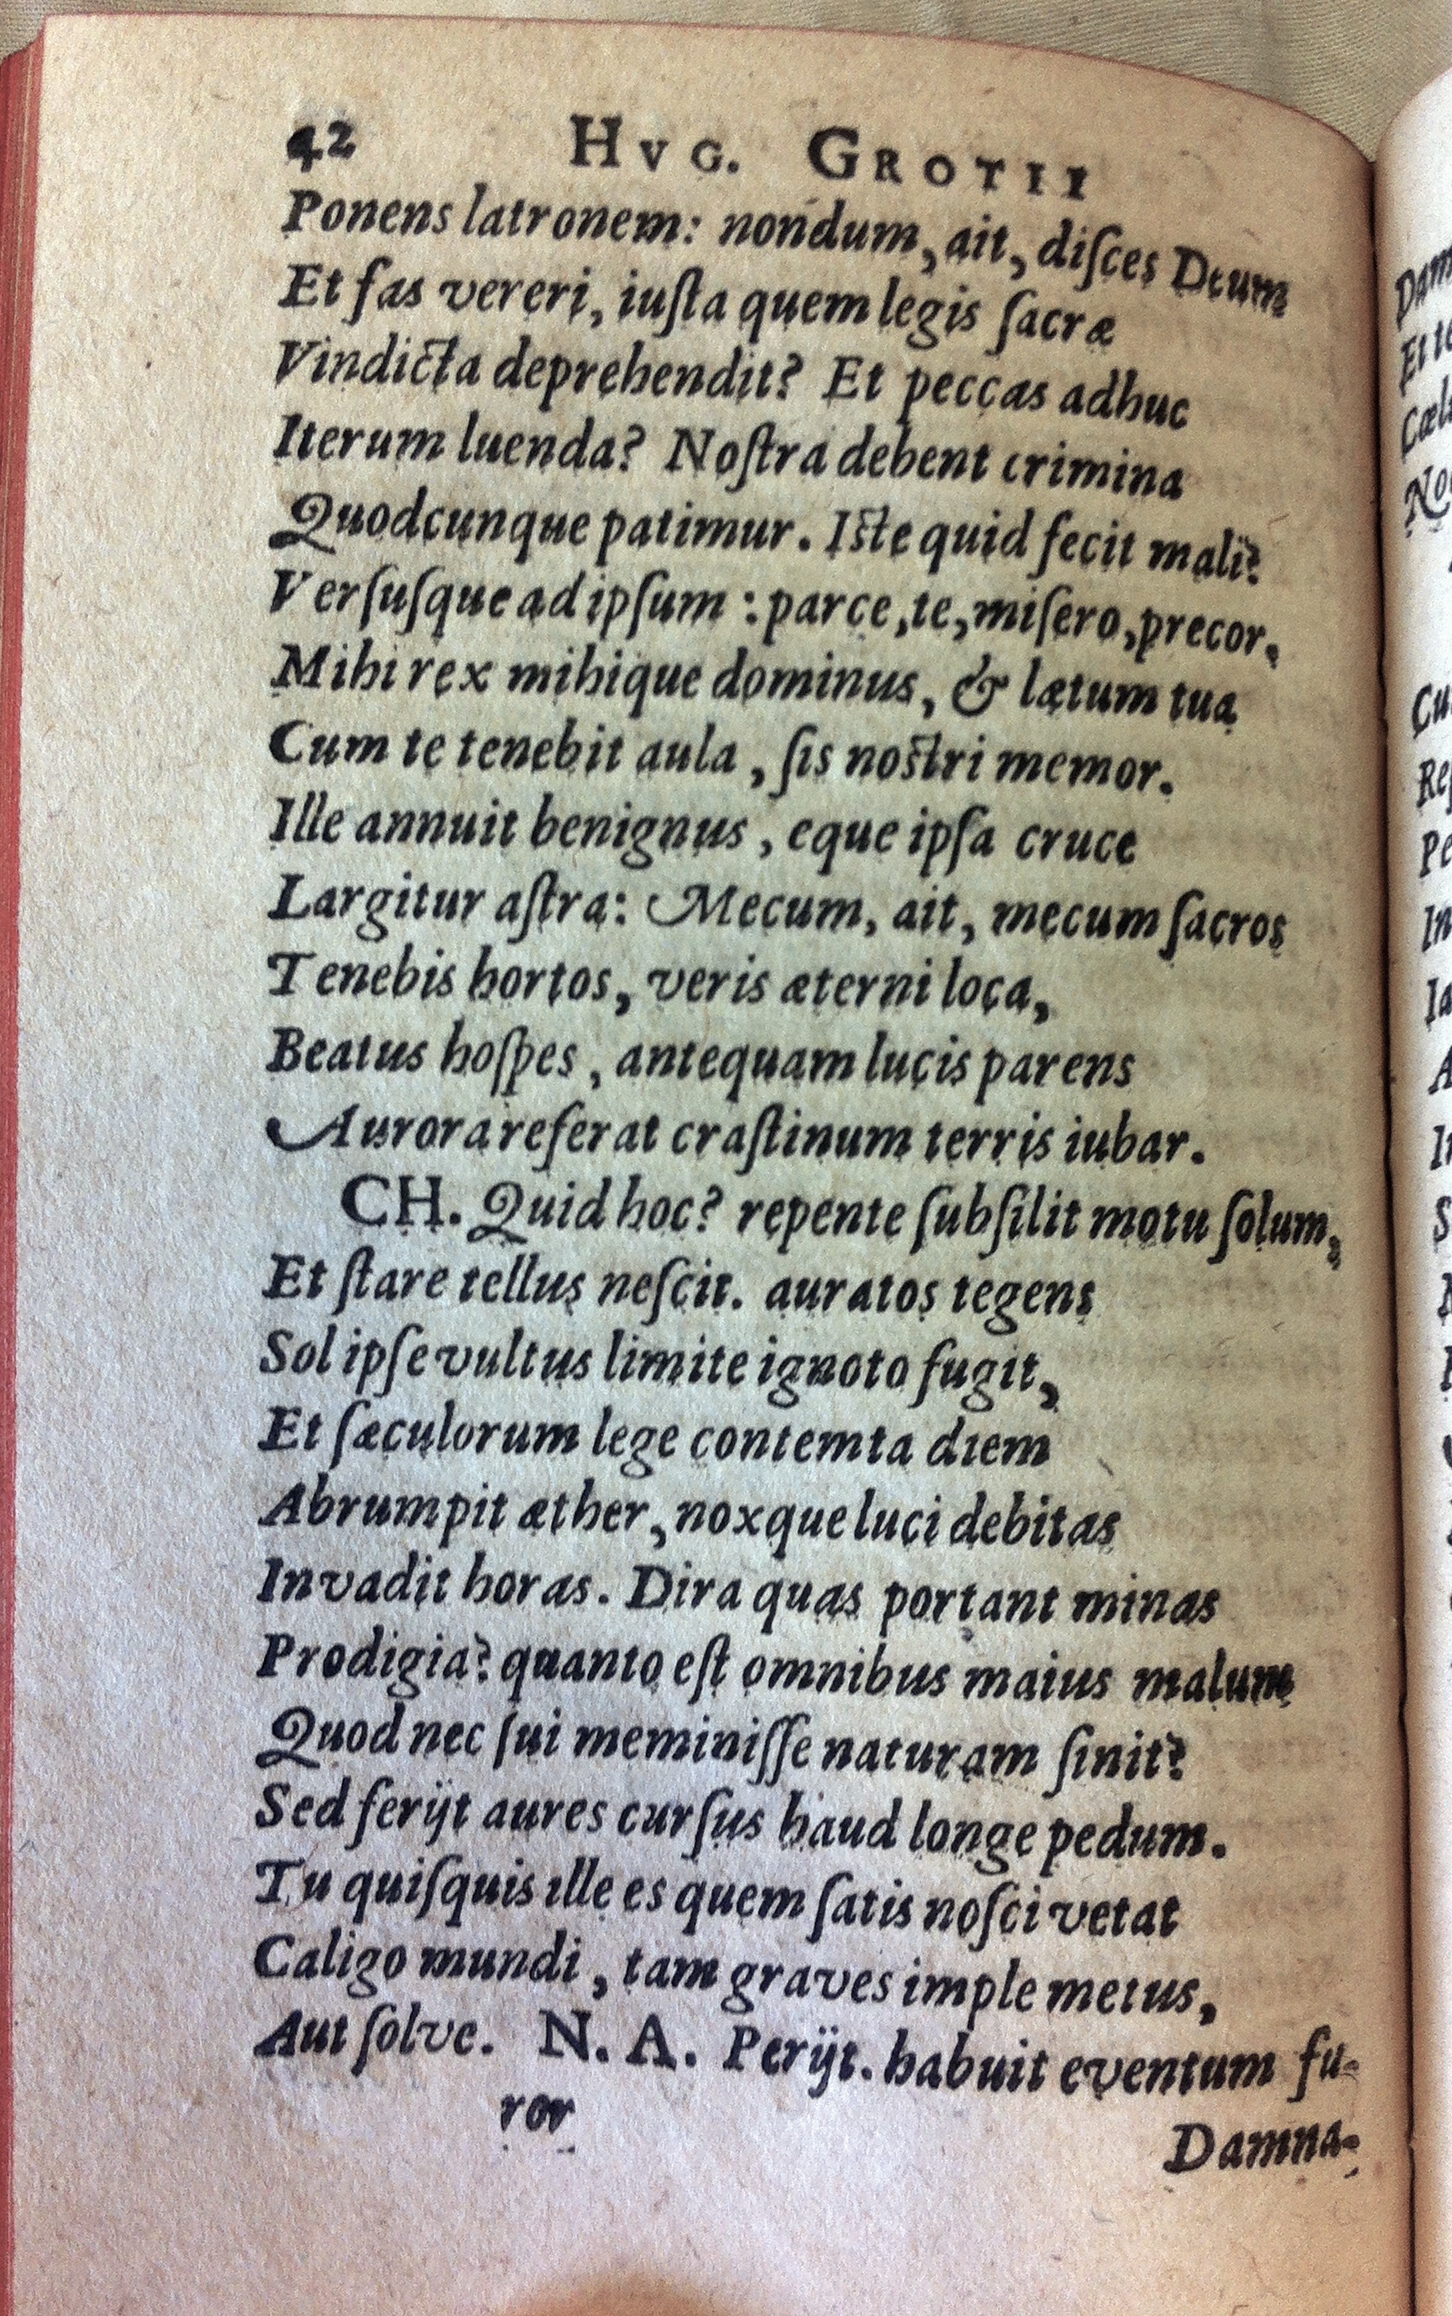 42 HVG. GROTII
Ponens latronem: nondum, ait, diſces Deum
Et fas vereri, iuſta quem legis ſacræ
Vindicta deprehendit? Et peccas adhuc
Iterum luenda? Noſtra debent crimina
Quodcunque patimur. Iſte quid fecit mali?
Verſuſque ad ipſum : parce, te, miſero, precor,
Mihi rex mihique dominus, & lætum tua
Cum te tenebit aula, ſis noſtri memor.
Ille annuit benignus, eque ipſa cruce
Largitur aſtra: Mecum, ait, mecum ſacros
Tenebis hortos, veris æterni loca,
Beatus hoſpes, antequam lucis parens
Aurora referat craſtinum terris iubar.
CH. Quid hoc? repente ſubſilit motu ſolum,
Et ſtare tellus neſcit. auratos tegens
Sol ipſe vultus limite ignoto fugit,
Et ſæculorum lege contemta diem
Abrumpit æther, noxque luci debitas
Invadit horas. Dira quas portant minas
Prodigia? quanto eſt omnibus maius malum
Quod nec ſui meminiſſe naturam ſinit?
Sed ferijt aures curſus haud longe pedum.
Tu quiſquis ille es quem ſatis noſci vetat
Caligo mundi, tam graves imple metus,
Aut ſolve. N. A. Perijt. habuit eventum fu-
ror
Damna-